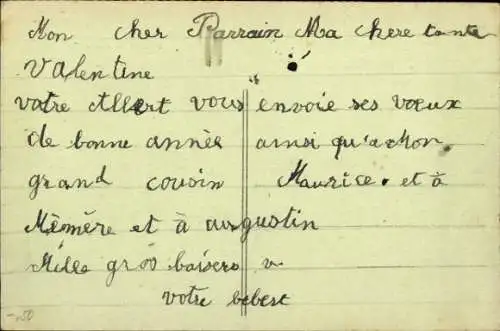 Mon cher Parrain Ma chere tante
Valentine
votre Albert vous envoie ses vœux
de bonne année ainsi qu'a Mon
grand cousin Maurice. et à
Mémère et à augustin
Mille gros baisers
votre bebert
-.50